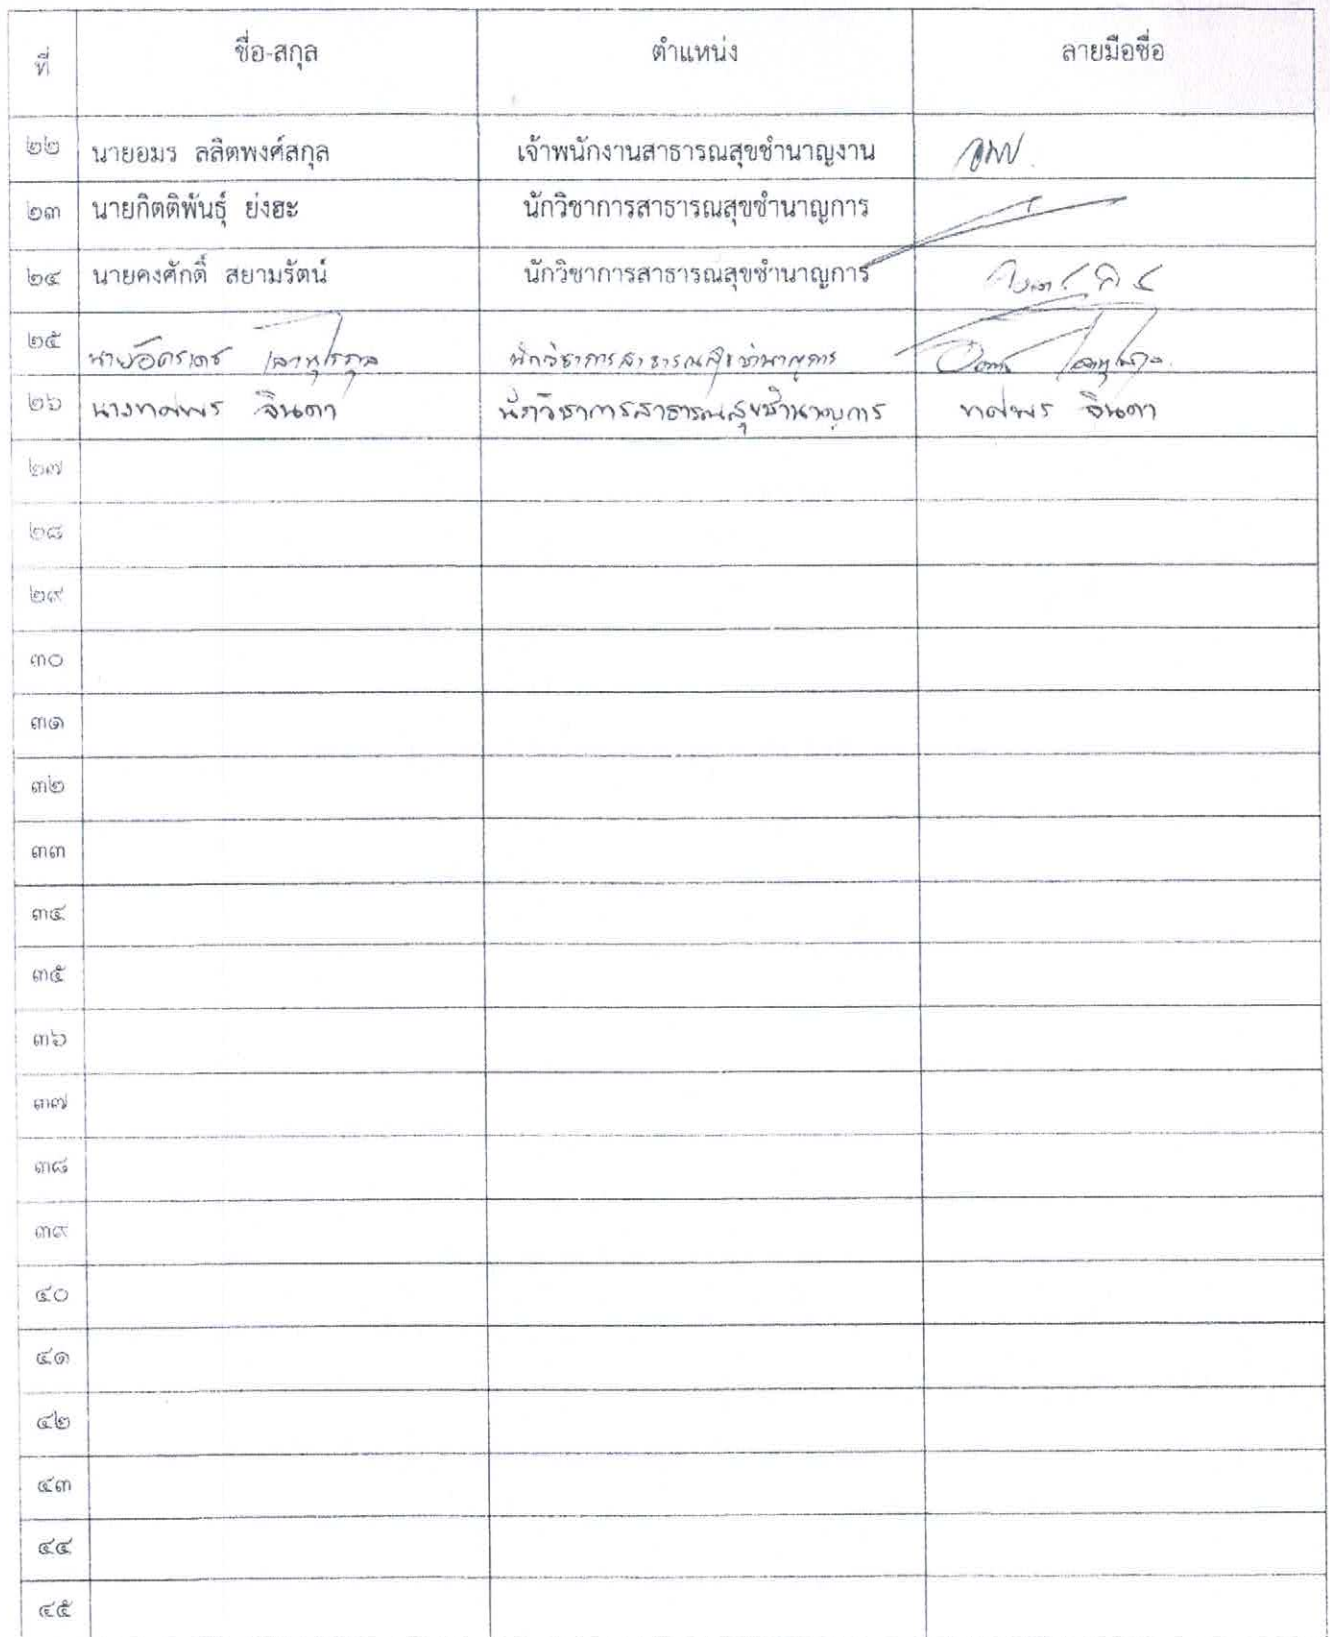 ที่ ชื่อ-สกุล ตำแหน่ง ลายมือชื่อ
๒๒ นายอมร ลลิตพงศ์สกุล เจ้าพนักงานสาธารณสุขชำนาญงาน
๒๓ นายกิตติพันธุ์ ย่งฮะ นักวิชาการสาธารณสุขชำนาญการ
๒๔ นายคงศักดิ์ สยามรัตน์ นักวิชาการสาธารณสุขชำนาญการ
๒๕ นักวิชาการสาธารณสุขชำนาญการ
๒๖ นางทศพร จินดา นักวิชาการสาธารณสุขชำนาญการ ทศพร จินดา
๒๗
๒๘
๒๙
๓๐
๓๑
๓๒
๓๓
๓๔
๓๕
๓๖
๓๗
๓๘
๓๙
๔๐
๔๑
๔๒
๔๓
๔๔
๔๕